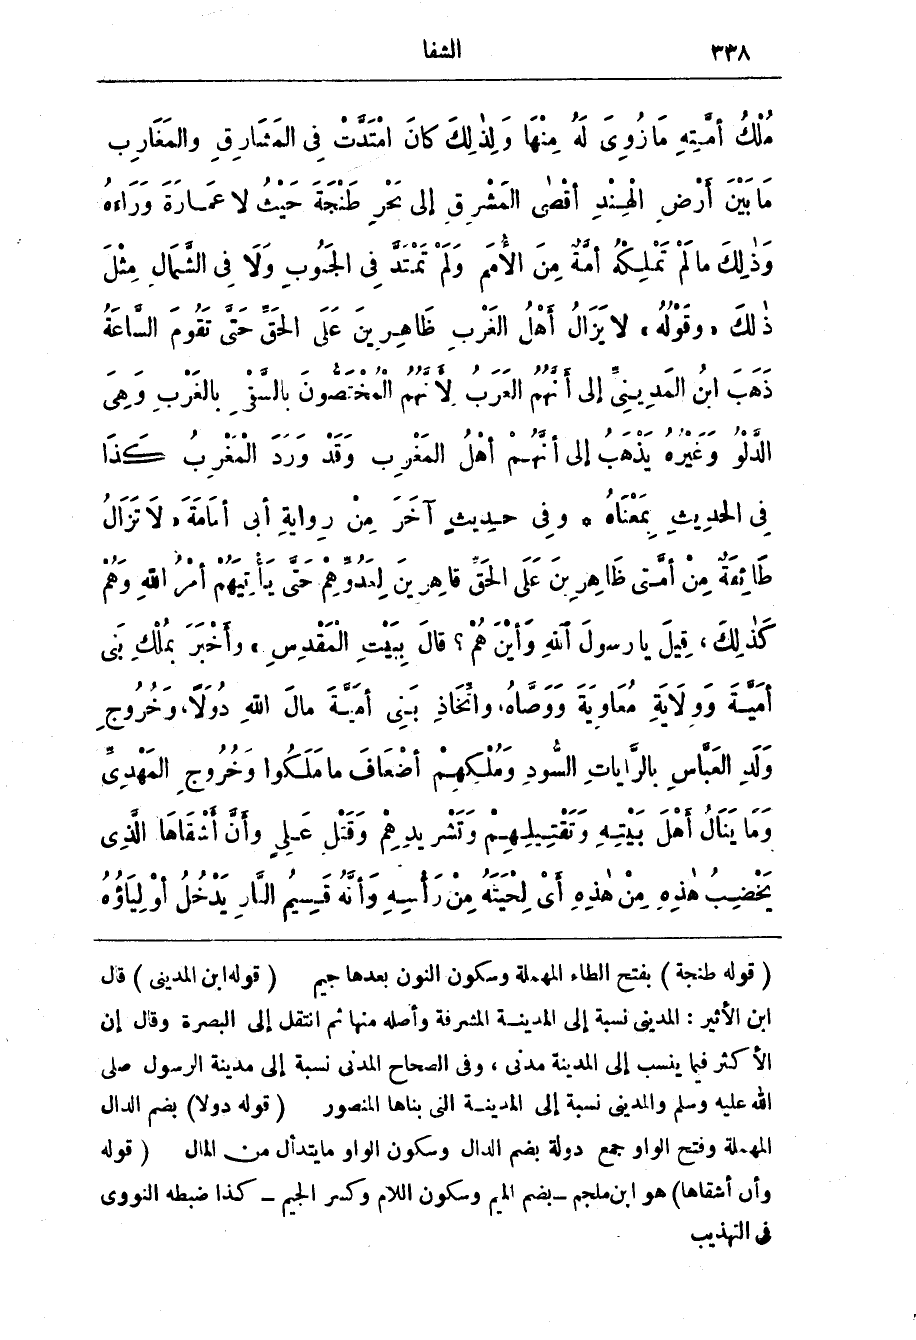 ٣٣٨
الشفا
مُلْكُ أمَّتِهِ مَا زُوِىَ لَهُ مِنْهَا وَلِذٰلِكَ كانَ امْتَدَّتْ فِى المَشَارِقِ والمَغَارِبِ
مَا بَيْنَ أَرْضِ الْهِنْدِ أقْصٰى المَشْرِقِ إلى بَحْرِ طَنْجَةَ حَيْثُ لا عمَارَةَ وَرَاءهُ
وَذٰلِكَ مالَمْ تَمْلِكْهُ أمَّةٌ مِنَ الأُمَمِ وَلَمْ تَمْتَدَّ فِى الجَنُوبِ وَلَا فِى الشَّمَالِ مِثْلَ
ذٰلكَ «وقَوْلُهُ» لا يَزَالُ أَهْلُ الغَرْبِ ظَاهِرِينَ عَلَى الحَقِّ حَتَّى تَقُومَ السَّاعَةُ
ذَهَبَ ابنُ المَدِينِىِّ إلى أَنَّهُمُ العَرَبُ لِأَنَّهُم الْمُخْتَصُّونَ بالسَّقْىِ بالغَرْبِ وَهِىَ
الدَّلْوُ وَغَيْرُهُ يَذْهَبُ إلى أنَّهُمْ أهْلُ المَغْرِبِ وَقَدْ وَرَدَ الْمَغْرِبُ كَذَا
فِى الحديثِ بِمَعْنَاهُ * وفى حديثٍ آخَرَ مِنْ روايةِ أبى أمَامَةَ «لا تَزَالُ
طَائِفَةٌ مِنْ أمَّتى ظَاهِرِينَ عَلَى الحَقِّ قاهِرِينَ لِعَدُوِّهِمْ حَتَّى يَأْتِيَهُمْ أمْرُ اللهِ وَهُمْ
كَذٰلِكَ، قِيلَ يا رسولَ اللهِ وَأيْنَ هُمْ؟ قالَ بِبَيْتِ الْمَقْدِسِ» وأَخْبَرَ بمُلْكِ بَنى
أمَيَّةَ وَوِلَايَةِ مُعَاوِيَةَ وَوَصَّاهُ، واتِّخَاذِ بَنِى أمَيَّةَ مالَ اللهِ دُوَلًا، وَخُرُوجِ
وَلَدِ العَبَّاسِ بالرَّايَاتِ السُّودِ وَمُلْكِهِمْ أضْعَافَ ما مَلَكُوا وَخُرُوجِ المَهْدِىِّ
وَمَا يَنَالُ أهْلَ بَيْتِهِ وَتَقْتِيلِهِمْ وَتَشْرِيدِهِمْ وَقَتْلِ عَلِىٍّ وأَنَّ أشْقَاهَا الَّذِى
يَخْضِبُ هٰذِهِ مِنْ هٰذِهِ أَىْ لِحْيَتَهُ مِنْ رَأسِهِ وَأنَّهُ قَسِيمُ النَّارِ يَدْخُلُ أوْلِيَاؤُهُ
( قوله طنجة ) بفتح الطاء المهملة وسكون النون بعدها جيم ( قوله ابن المدينى ) قال
ابن الأثير : المدينى نسبة إلى المدينة المشرفة وأصله منها ثم انتقل إلى البصرة وقال إن
الأكثر فيما ينسب إلى المدينة مدنى ، وفى الصحاح المدنى نسبة إلى مدينة الرسول صلى
الله عليه وسلم والمدينى نسبة إلى المدينة التى بناها المنصور ( قوله دولا) بضم الدال
المهملة وفتح الواو جمع دولة بضم الدال وسكون الواو مايتدأل من المال ( قوله
وأن أشقاها) هو ابن ملجم - بضم الميم وسكون اللام وكسر الجيم - كذا ضبطه النووى
فى التهذيب